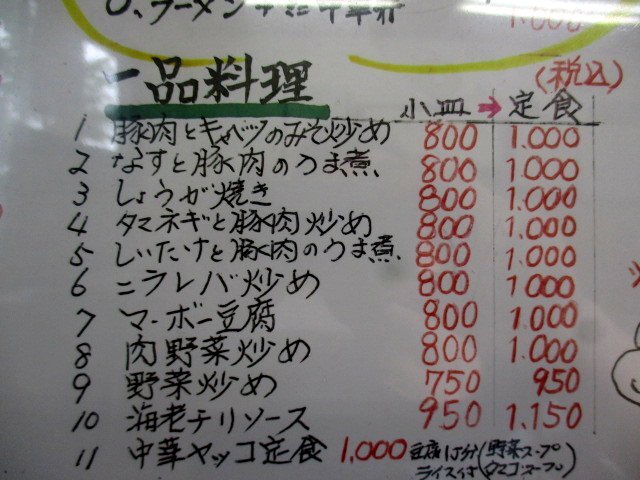 一品料理 (税込)
小皿 → 定食
1 豚肉とキャベツのみそ炒め 800 1.000
2 なすと豚肉のうま煮 800 1.000
3 しょうが焼き 800 1.000
4 タマネギと豚肉炒め 800 1.000
5 しいたけと豚肉のうま煮 800 1.000
6 ニラレバ炒め 800 1.000
7 マーボー豆腐 800 1.000
8 肉野菜炒め 800 1.000
9 野菜炒め 750 950
10 海老チリソース 950 1.150
11 中華ヤッコ定食 1,000 豆腐1丁分(野菜スープ
ライス付(タマゴスープ)